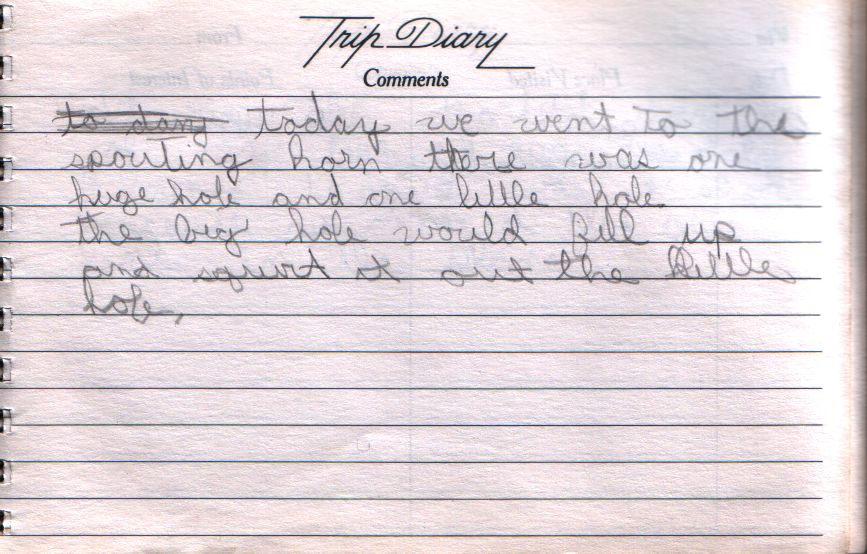 Trip Diary
Comments
to dany today we went to the
spouting horn there was one
huge hole and one little hole.
the big hole would fill up
and squirt it out the little
hole.